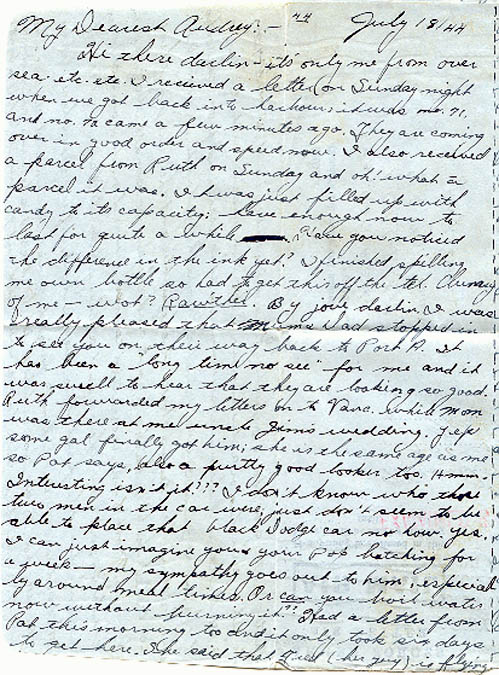 My Dearest Audrey:- 44 July 18/44
Hi there darlin - it's only me from over
sea. etc. etc. I recieved a letter on Sunday night
when we got back into harbour; it was no. 71,
and no. 72 came a few minutes ago. They are coming
over in good order and speed now. I also received
a parcel from Ruth on Sunday and oh! what a
parcel it was. It was just filled up with
candy to its capacity; have enough now to
last for quite a while. Have you noticed
the difference in the ink yet? I finished spilling
me own bottle so had to get this off the tel. Clumsy
of me - wot? Rawther. By jove darlin, I was
really pleased that Mum & Dad stopped in
to see you on their way back to Port A. It
has been a "long time no see" for me and it
was swell to hear that they are looking so good.
Ruth forwarded my letters on to Vanc. while Mom
was there at me uncle Jim's wedding. Yep
some gal finally got him; she is the same age as me
so Pat says, also a purty good looker too. Hmm.
Interesting isn't it??? I don't know who those
two men in the car were, just don't seem to be
able to place that black Dodge car no how. Yes,
I can just imagine you & your Pop batching for
a week - my sympathy goes out to him, especial
ly around meal times. Or can you boil water
now without burning it?! Had a letter from
Pat this morning too and it only took six days
to get here. She said that (her guy) is flying